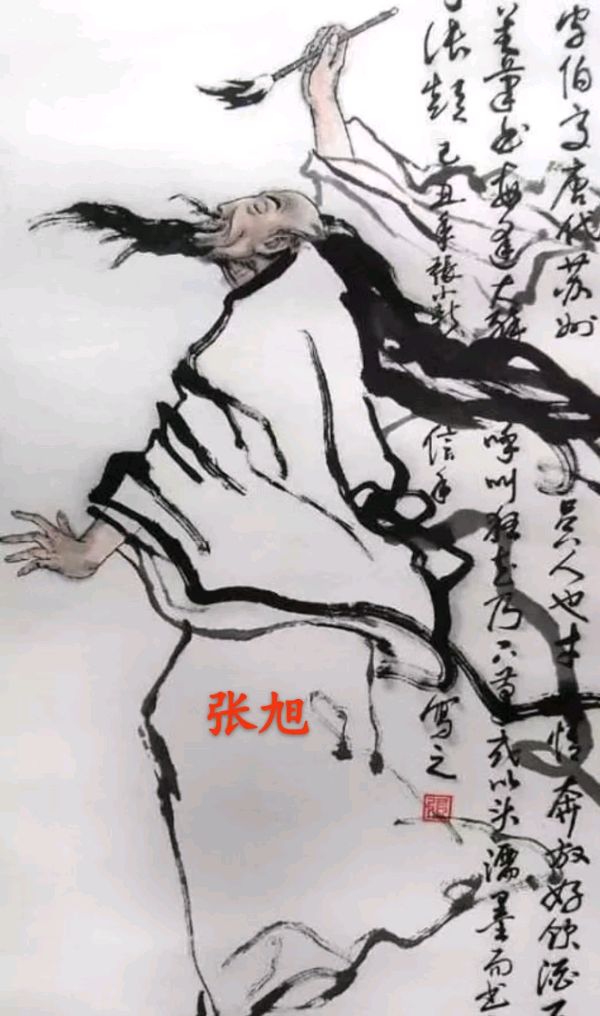 字伯高唐代苏州吴人也 情奔放好饮酒
草书每逢大醉呼叫狂走乃下笔或以头濡墨而书
张颠 己丑年张小 信手写之
张旭